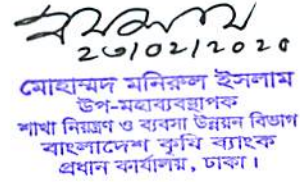 ২৩/০২/২০২৫
মোহাম্মদ মনিরুল ইসলাম
উপ-মহাব্যবস্থাপক
শাখা নিয়ন্ত্রণ ও ব্যবসা উন্নয়ন বিভাগ
বাংলাদেশ কৃষি ব্যাংক
প্রধান কার্যালয়, ঢাকা।